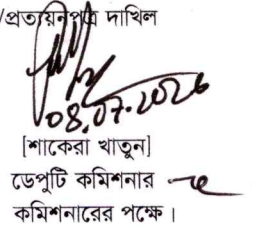 /প্রত্যয়নপত্র দাখিল
08.07.2026
[শাকেরা খাতুন]
ডেপুটি কমিশনার
কমিশনারের পক্ষে।